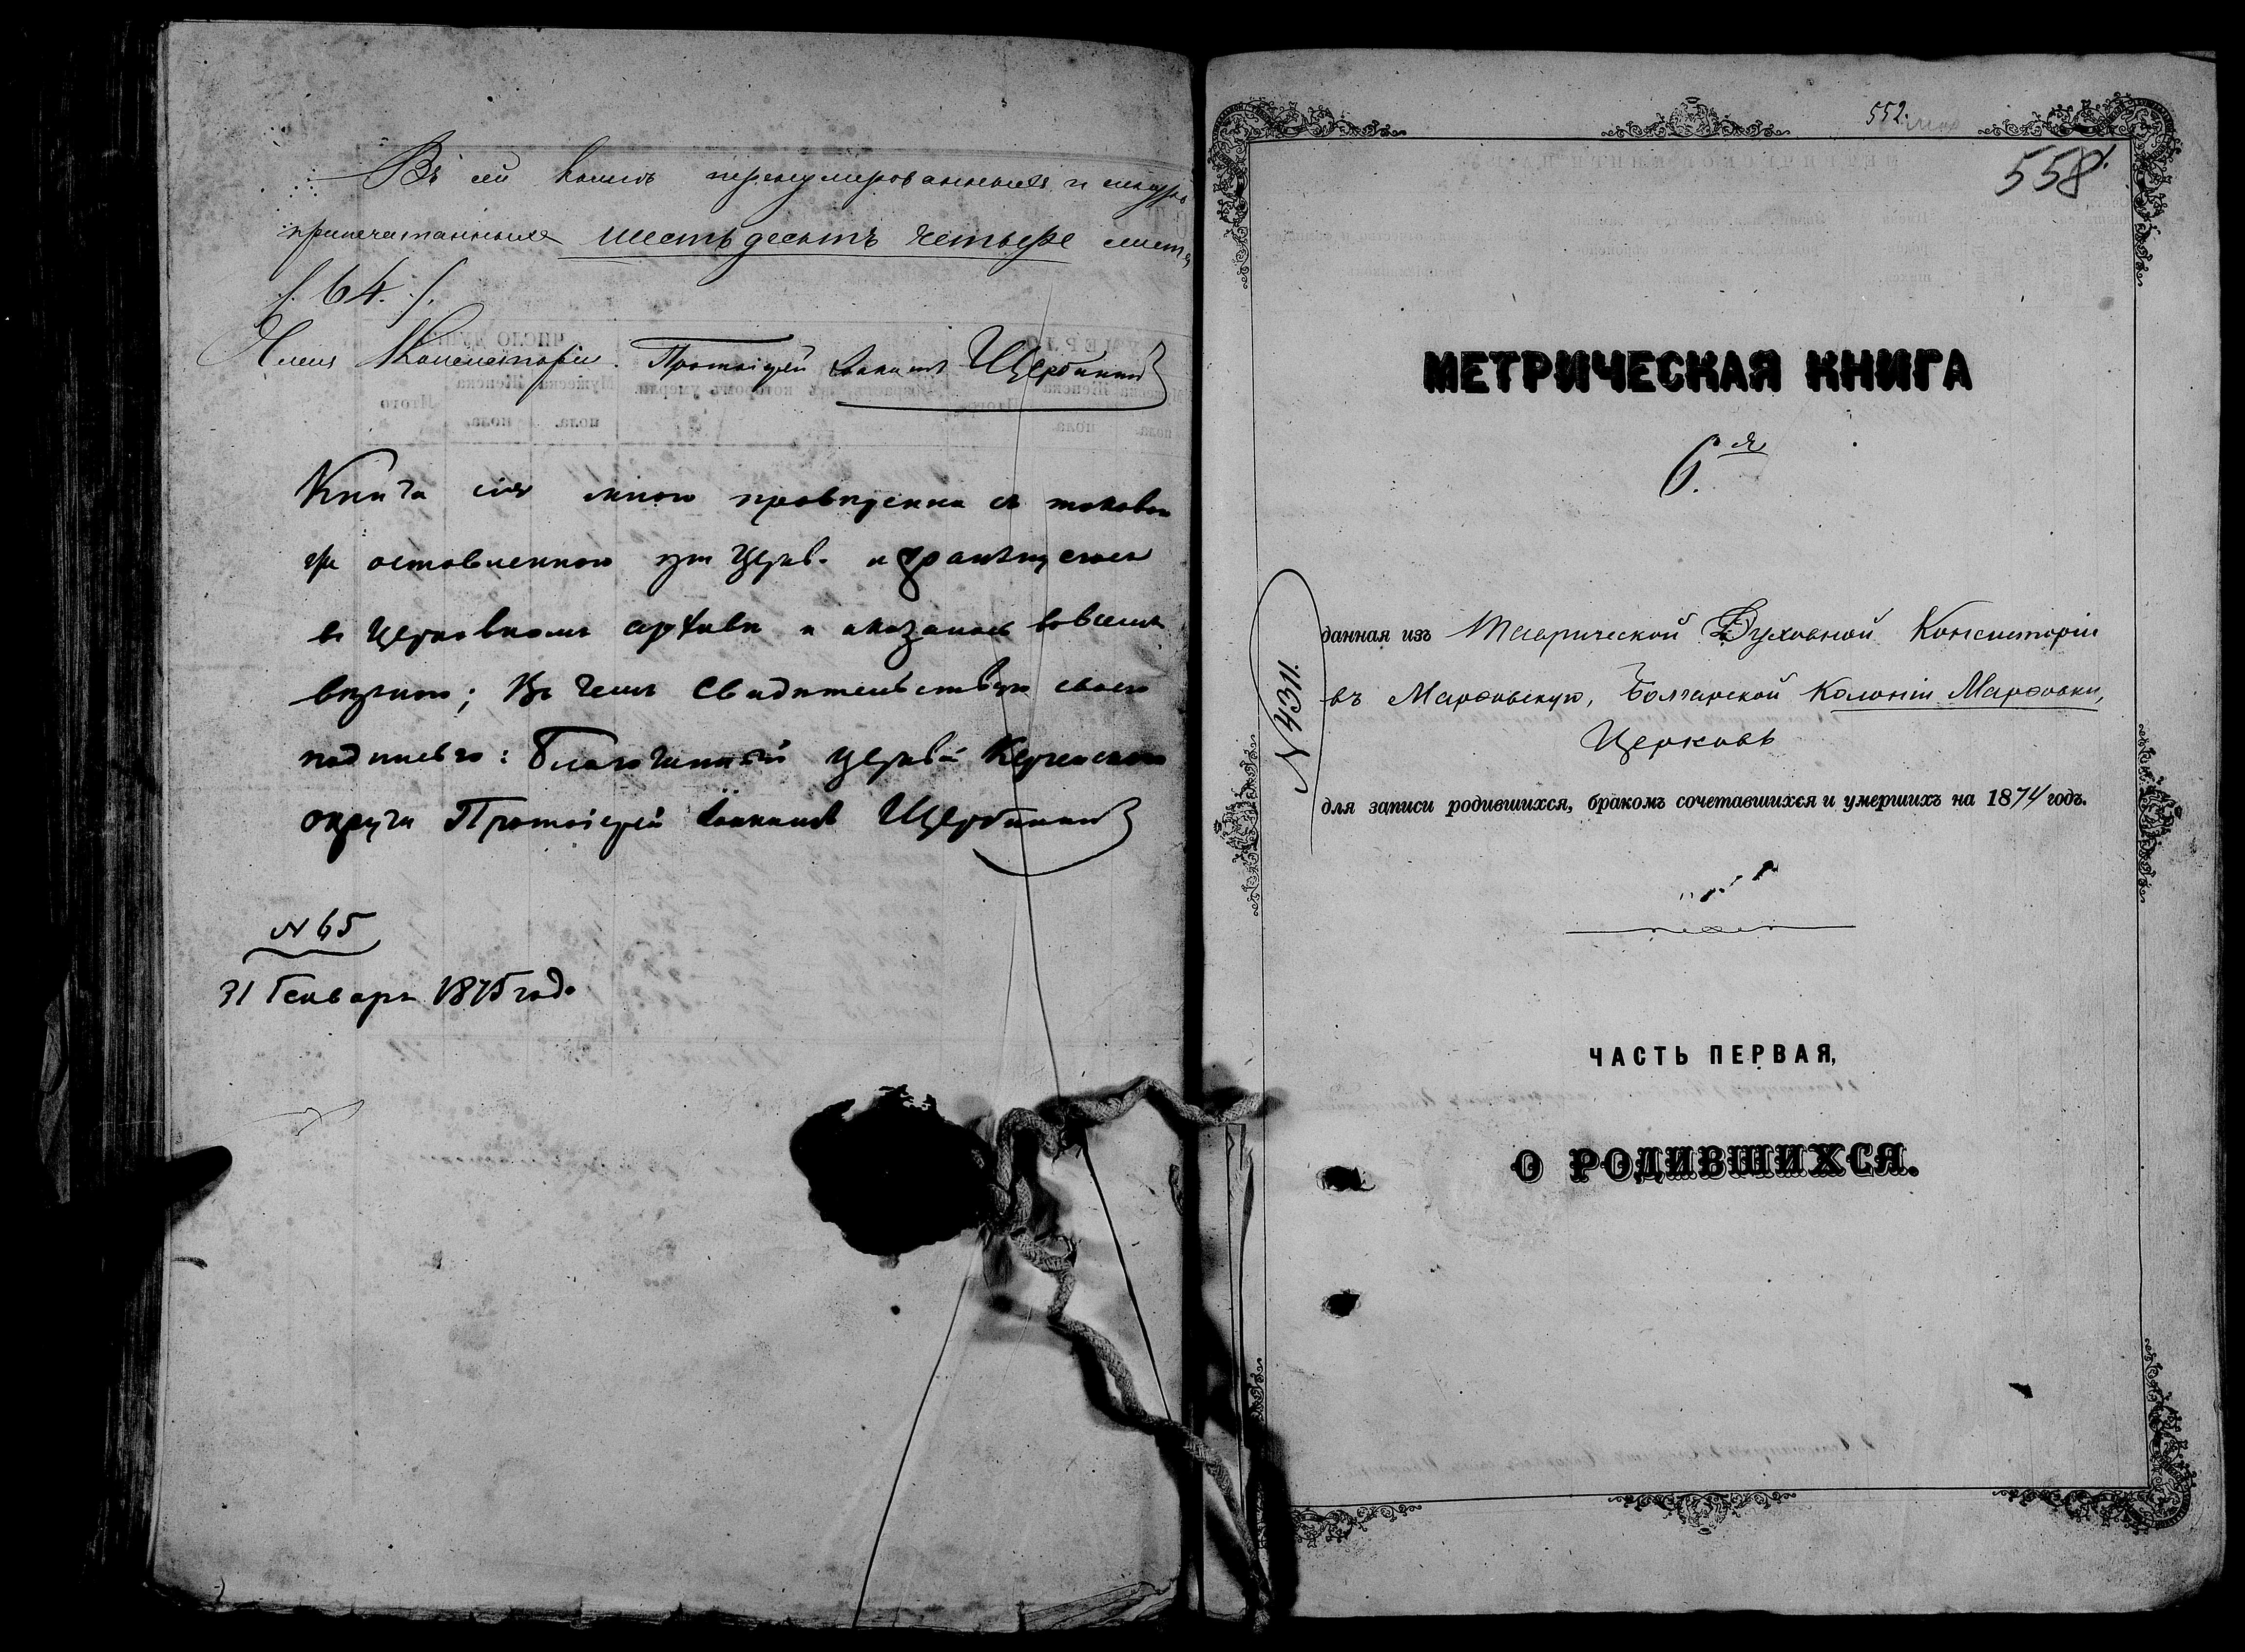 Въ сей книгѣ перенумерованныхъ и шнуро
припечатанныхъ шестьдесятъ четыре листа
/. 64. /.
Членъ Консисторіи Протоіерей Іоаннъ Щербининъ
Книга сія мною провѣрена съ таковою
же оставленною при Церкв. и хранящеюся
въ Церковномъ архивѣ и оказалась во всемъ
вѣрною; въ чемъ Свидѣтельствую своею
подписью: Благочинный церквей Керченскаго
округа Протоіерей Іоаннъ Щербининъ
№ 65
31 Генваря 1875 года
552.
558.
МЕТРИЧЕСКАЯ КНИГА
6.я
№ 4311.
данная изъ Таврической Духовной Консисторіи
въ Марѳовскую, Болгарской Колоніи Марѳовки,
Церковь
для записи родившихся, бракомъ сочетавшихся и умершихъ на 1874 годъ.
ЧАСТЬ ПЕРВАЯ,
О РОДИВШИХСЯ.